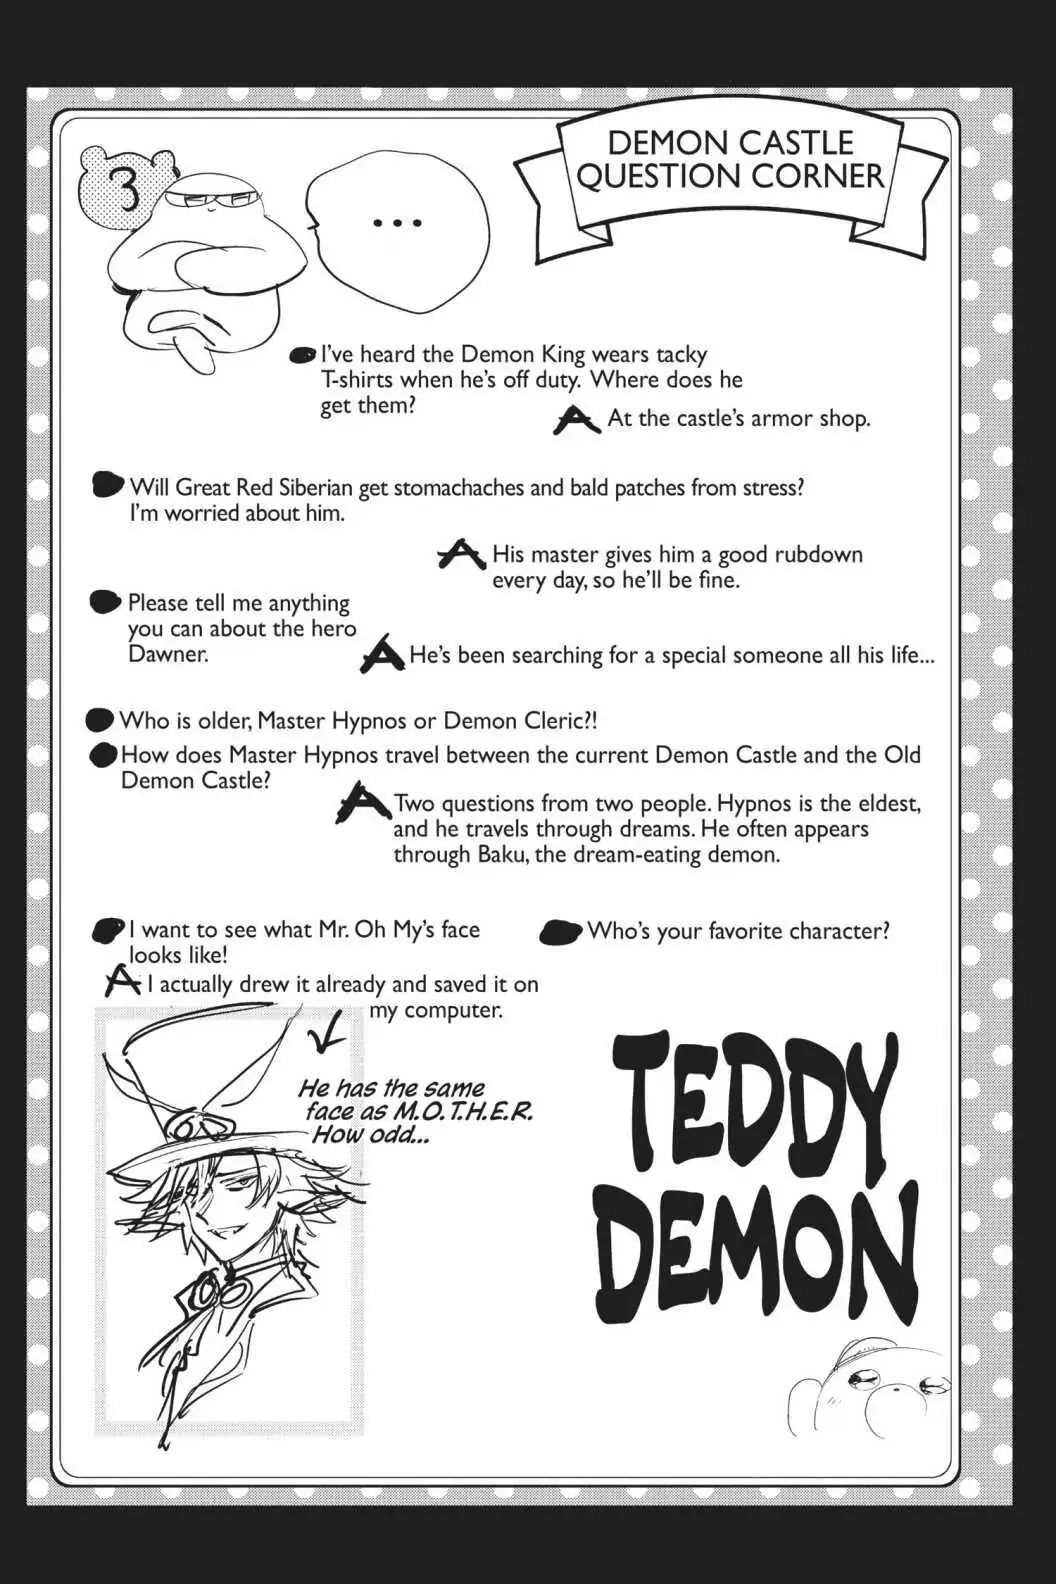 DEMON CASTLE
QUESTION CORNER
3
...
I've heard the Demon King wears tacky
T-shirts when he's off duty. Where does he
get them?
A At the castle's armor shop.
Will Great Red Siberian get stomachaches and bald patches from stress?
I'm worried about him.
A His master gives him a good rubdown
every day, so he'll be fine.
Please tell me anything
you can about the hero
Dawner.
A He's been searching for a special someone all his life...
Who is older, Master Hypnos or Demon Cleric?!
How does Master Hypnos travel between the current Demon Castle and the Old
Demon Castle?
A Two questions from two people. Hypnos is the eldest,
and he travels through dreams. He often appears
through Baku, the dream-eating demon.
I want to see what Mr. Oh My's face
looks like!
A I actually drew it already and saved it on
my computer.
He has the same
face as M.O.T.H.E.R.
How odd...
Who's your favorite character?
TEDDY
DEMON